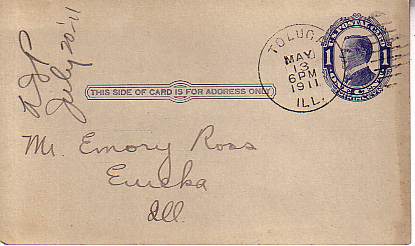 July 20 '11
TOLUCA
MAY
13
6 PM
1911
ILL.
1
1
THIS SIDE OF CARD IS FOR ADDRESS ONLY
Mr. Emory Ross
Eureka
Ill.